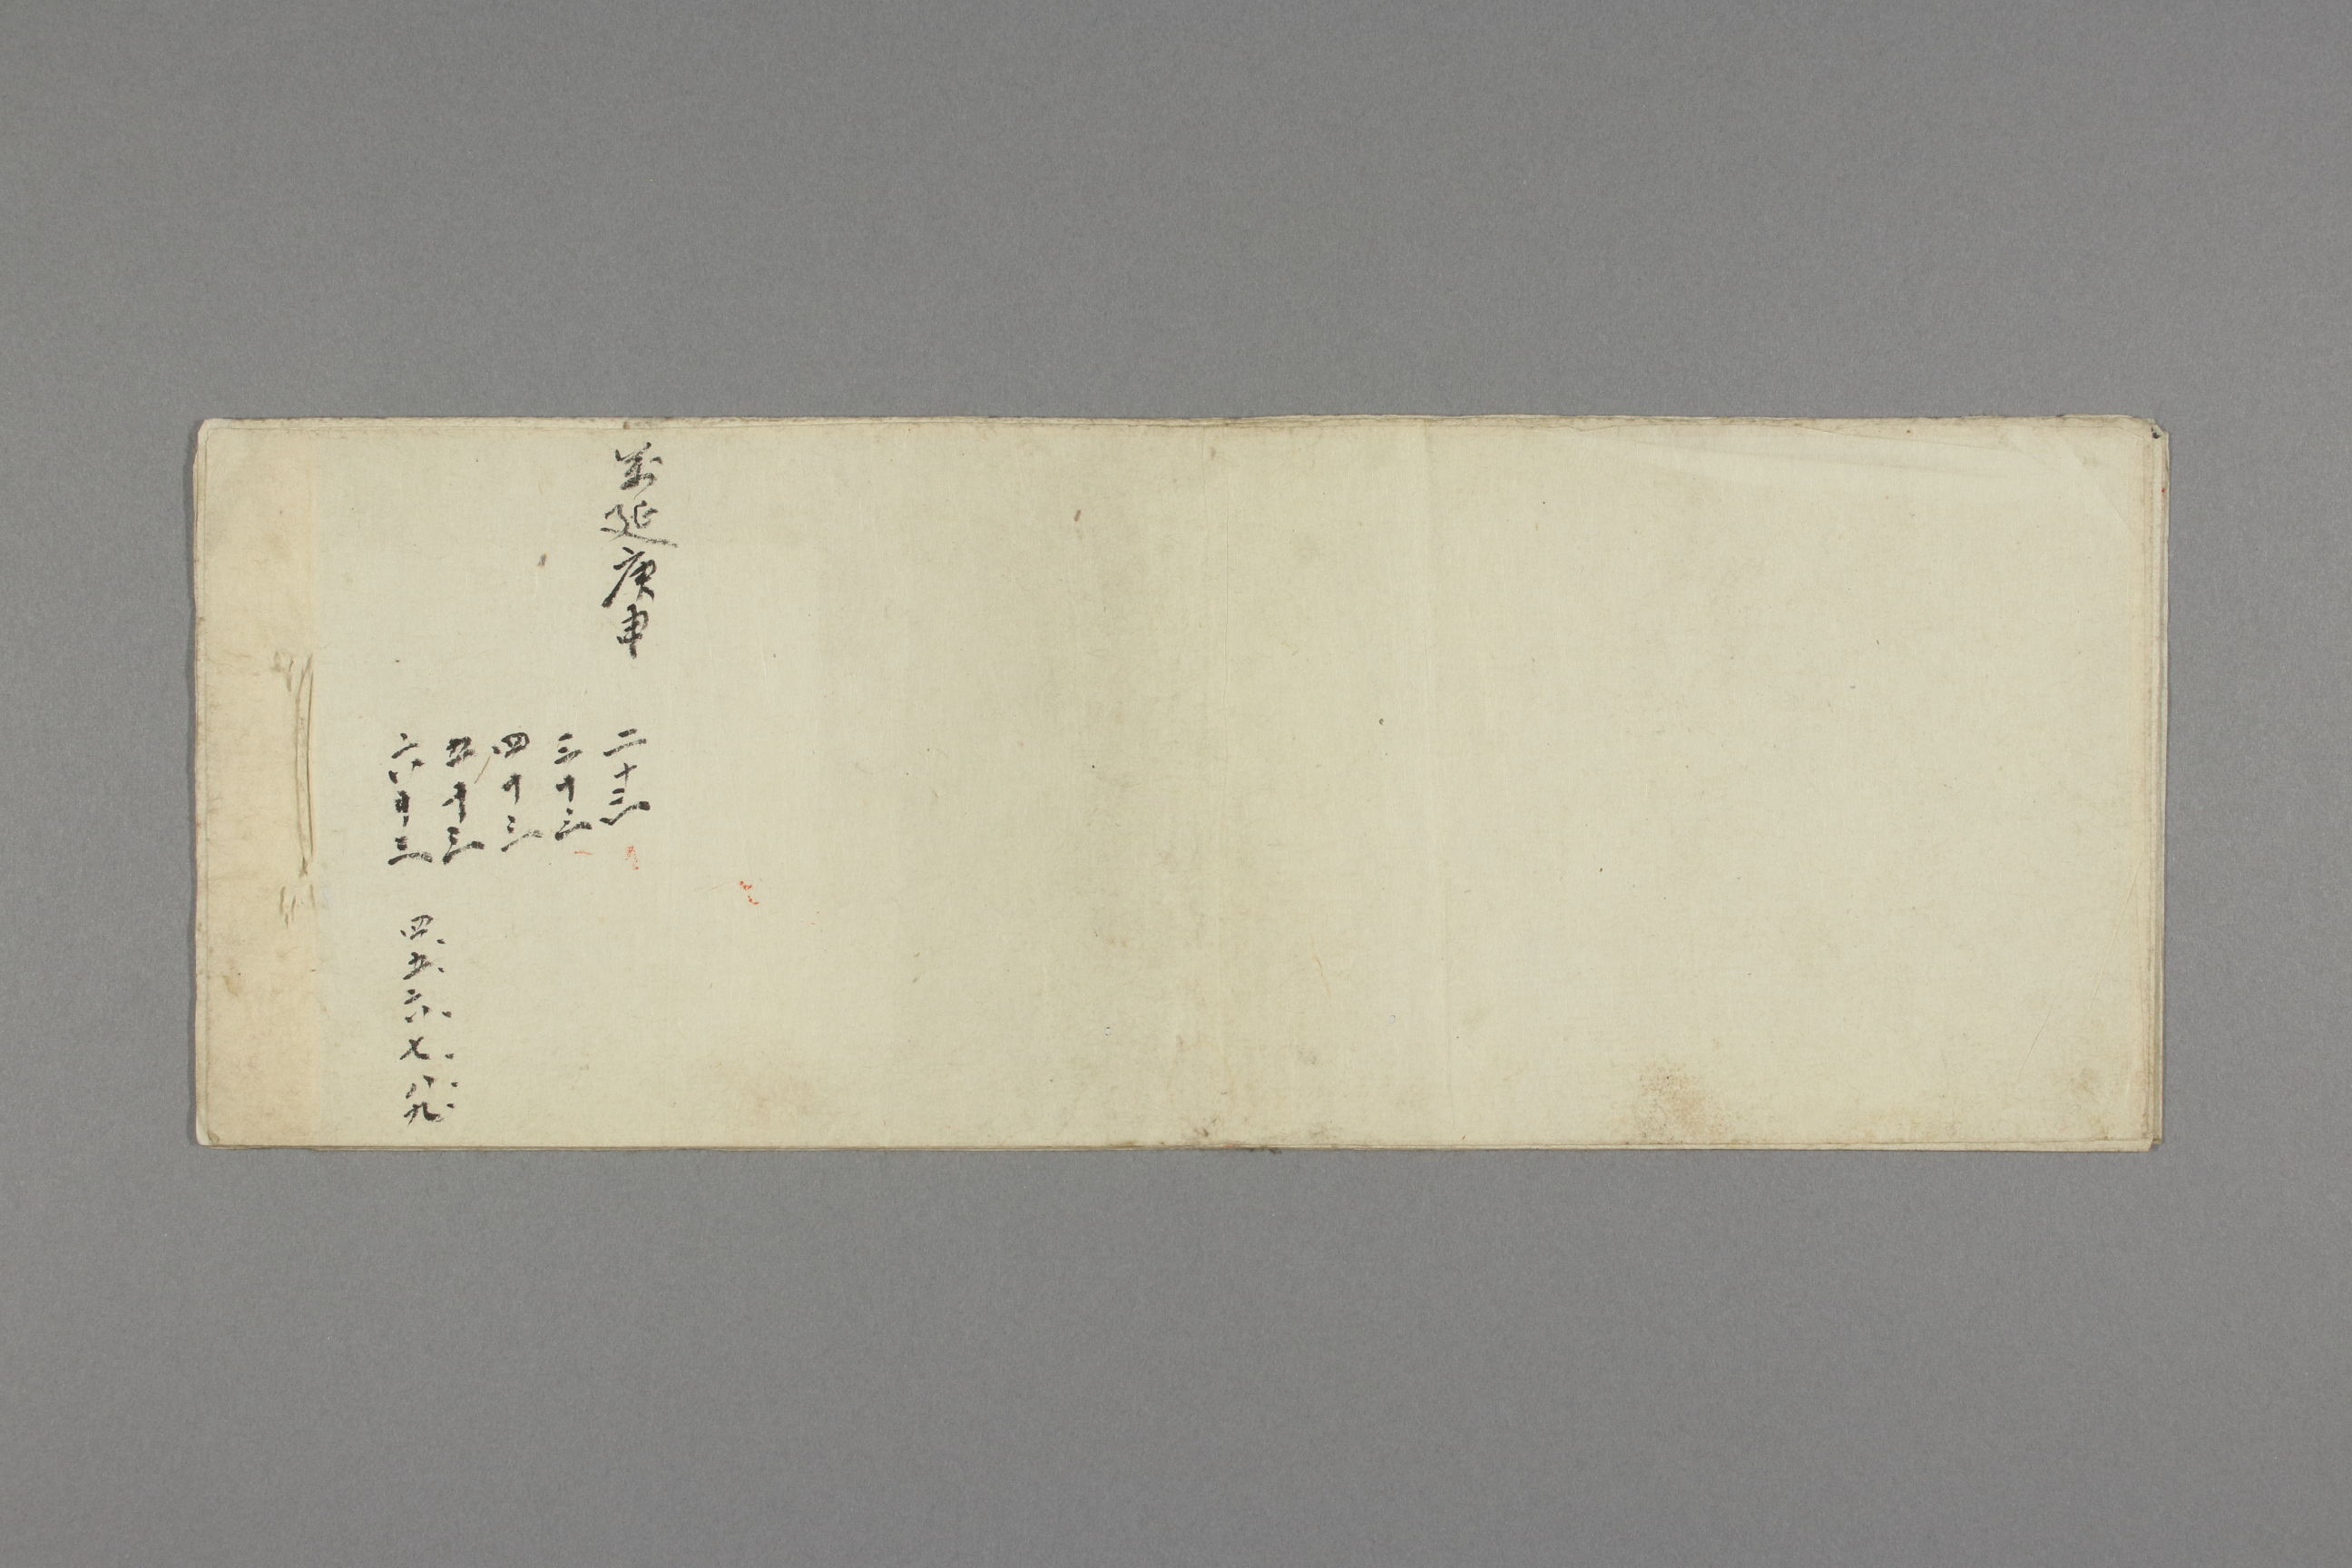 萬延庚申
二十三
三十三
四十三
五十三
六十三
四、五、六、七、八、九、